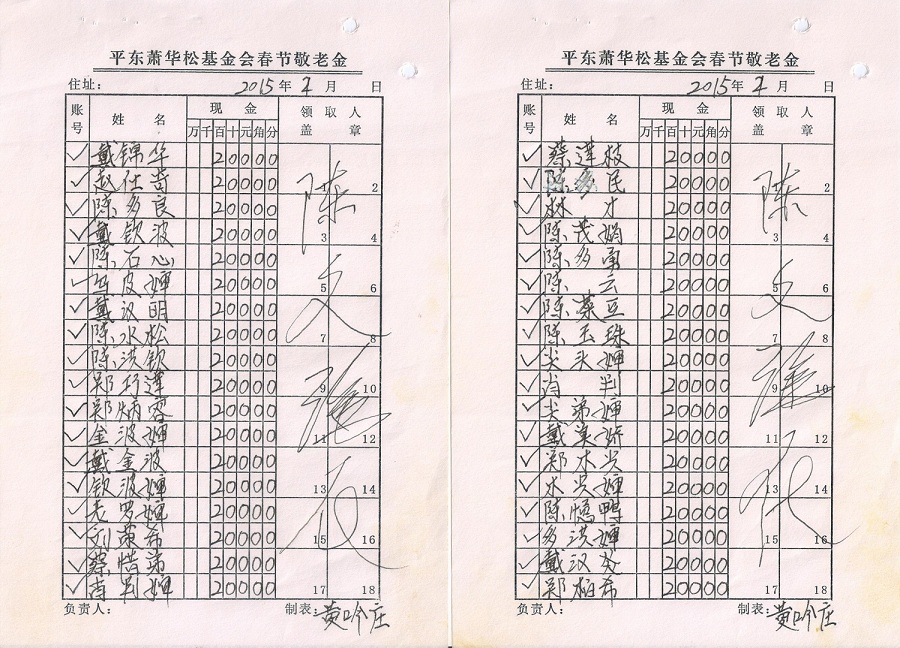 平东萧华松基金会春节敬老金
住址： 2015年 月 日
账号 姓名 现金 领取人盖章
万千百十元角分
戴锦华 20000
赵仕苛 20000 1 2
陈多良 20000
戴钦波 20000 3 4
陈石心 20000
皮婶 20000 5 6
戴汉明 20000
陈水松 20000 7 8
陈洪钦 20000
郑巧莲 20000 9 10
郑炳容 20000
金波婶 20000 11 12
戴金波 20000
钦波婶 20000 13 14
老罗婶 20000
刘荣希 20000 15 16
蔡惜弟 20000
婶 20000 17 18
陈
文
负责人： 制表：黄吟庄
平东萧华松基金会春节敬老金
住址： 2015年 月 日
账号 姓名 现金 领取人盖章
万千百十元角分
蔡莲枝 20000
陈多民 20000 2
林才 20000
陈茂娟 20000 3 4
陈多勇 20000
陈云 20000 5 6
陈荣豆 20000
陈玉珠 20000 7 8
尖头婶 20000
肖 20000 9 10
尖弟婶 20000
戴美娇 20000 11 12
郑木兴 20000
木兴婶 20000 13 14
陈鸭 20000
多洪婶 20000 15 16
戴汉 20000
郑柏希 20000 17 18
陈
文
负责人： 制表：黄吟庄